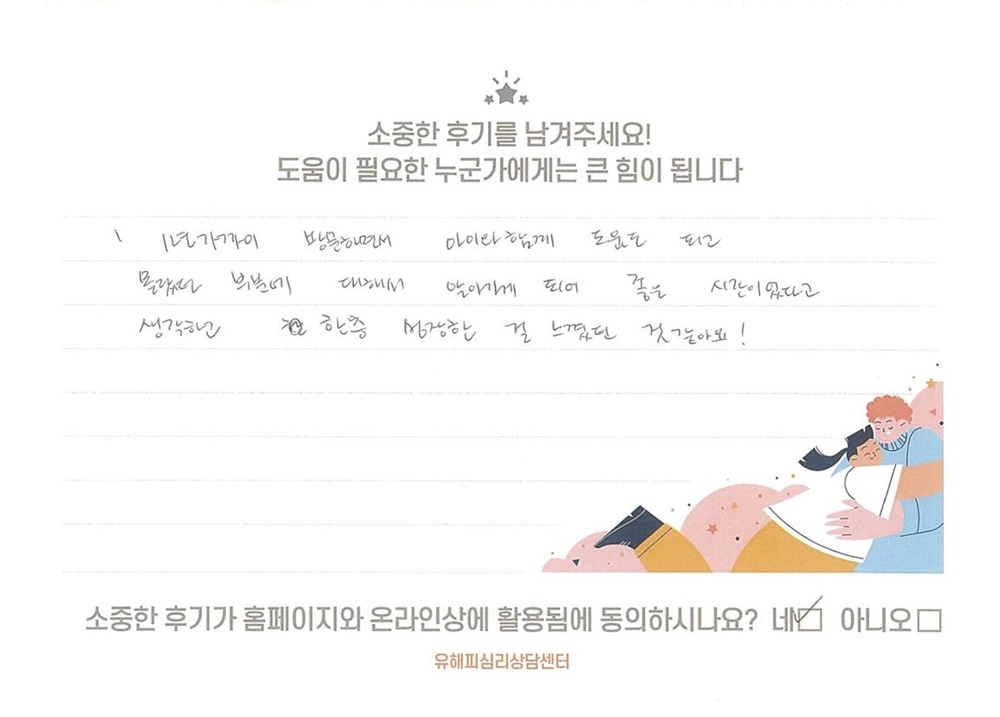 소중한 후기를 남겨주세요!
도움이 필요한 누군가에게는 큰 힘이 됩니다
1년가까이 방문하면서 아이와함께 도움도 되고
몰랐던 부분에 대해서 알아가게 되어 좋은 시간이었다고
생각하면 한층 성장한 걸 느꼈던 것 같아요!
소중한 후기가 홈페이지와 온라인상에 활용됨에 동의하시나요? 네 아니오
유해피심리상담센터